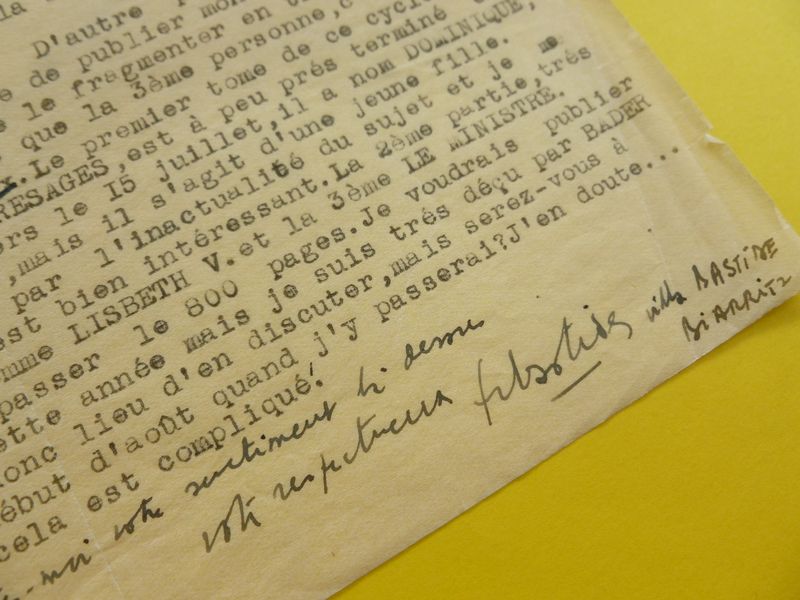 la
D'autre
de publier mon
le fragmenter en
que la 3ème personne,
.Le premier tome de ce cycle
RESAGES,est à peu prés terminé
ers le 15 juillet,il a nom DOMINIQUE,
,mais il s'agit d'une jeune fille.
par l'inactualité du sujet et je me
est bien intéressant.La 2ème partie,trés
omme LISBETH V.et la 3ème LE MINISTRE.
passer le 800 pages.Je voudrais publier
ette année mais je suis trés déçu par BADER
onc lieu d'en discuter,mais serez-vous à
ébut d'août quand j'y passerai?J'en doute...
cela est compliqué!
-moi votre sentiment là dessus
votre respectueux
villa BASTIDE
BIARRITZ